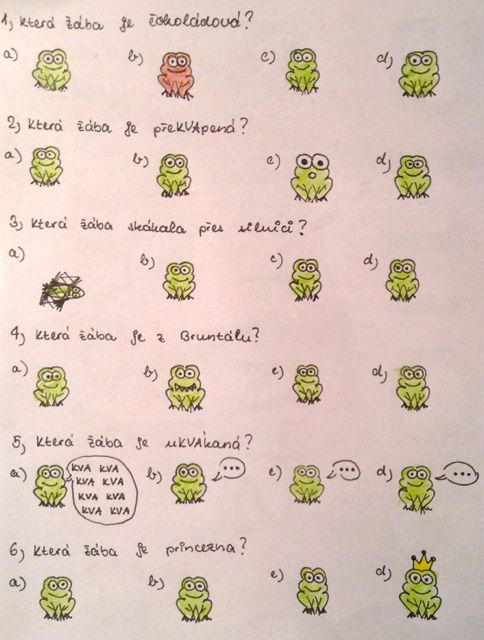 1, Která žába je čokoládová?
a) b) c) d)
2, Která žába je překVApená?
a) b) c) d)
3, Která žába skákala přes silnici?
a) b) c) d)
4, Která žába je z Bruntálu?
a) b) c) d)
5, Která žába je uKVÁkaná?
a) KVA KVA b) ... c) ... d) ...
KVA KVA
KVA KVA
KVA KVA
6, Která žába je princezna?
a) b) c) d)